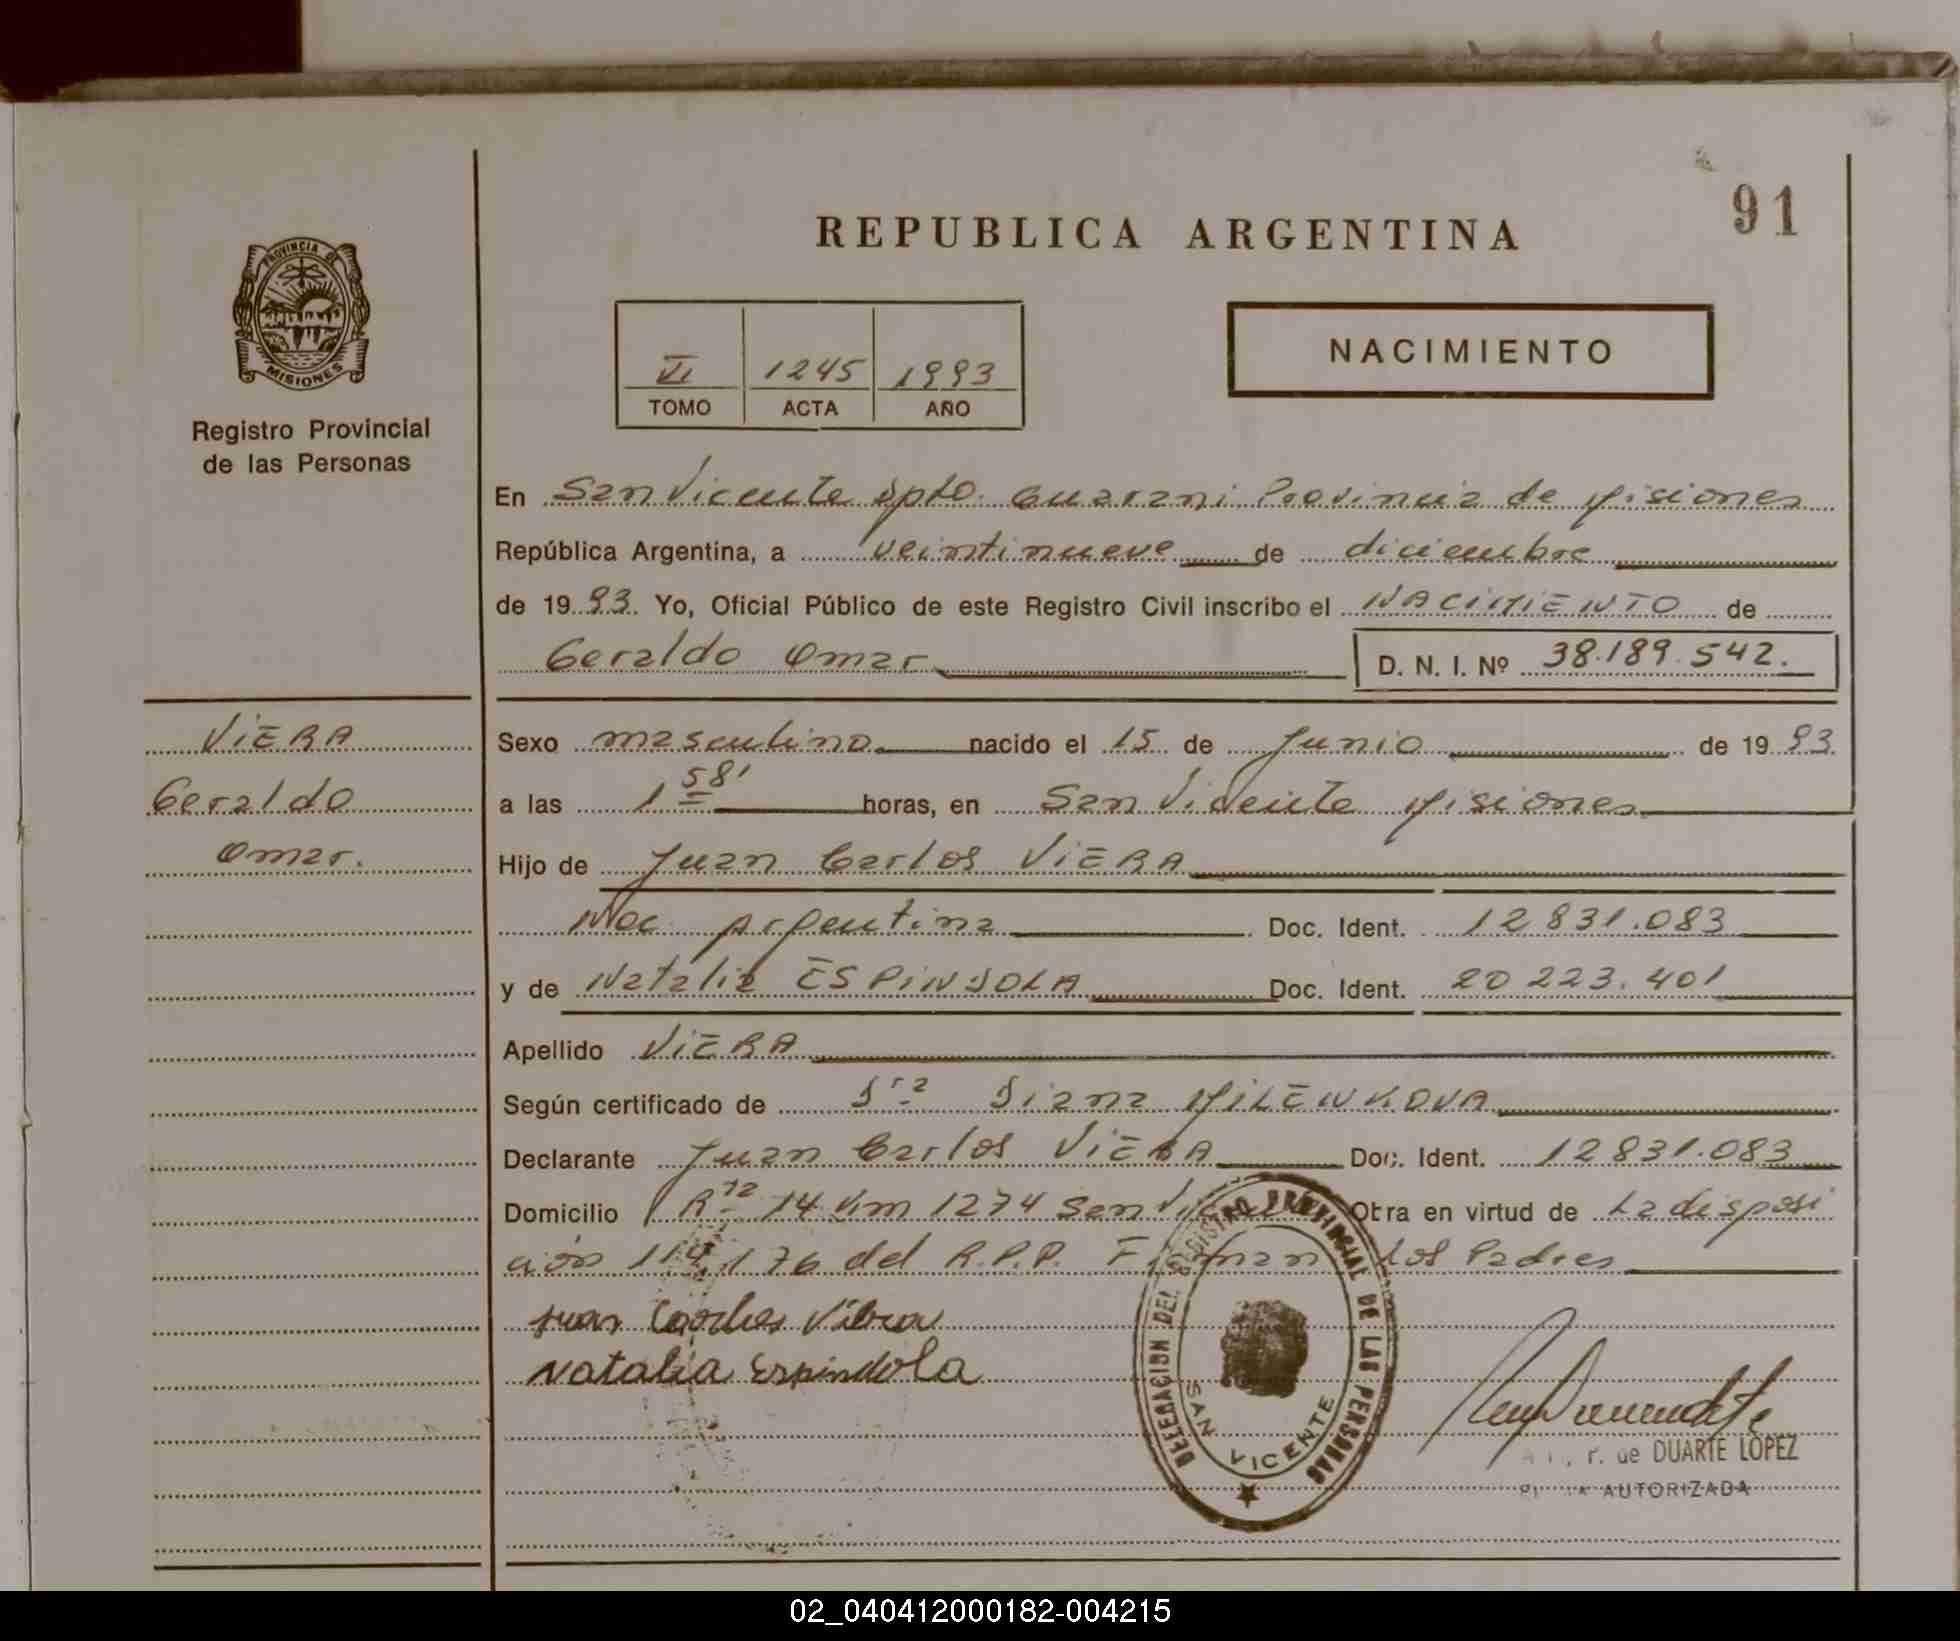 91
REPUBLICA ARGENTINA
PROVINCIA DE
MISIONES
Registro Provincial
de las Personas
NACIMIENTO
VI 1245 1993
TOMO ACTA AÑO
En San Vicente Dpto. Guarani Provincia de Misiones
República Argentina, a veintinueve de diciembre
de 1993. Yo, Oficial Público de este Registro Civil inscribo el NACIMIENTO de
Geraldo Omar D. N. I. Nº 38.189.542.
VIERA
Geraldo
Omar.
Sexo masculino nacido el 15 de Junio de 1993
a las 1 58' horas, en San Vicente Misiones
Hijo de Juan Carlos VIERA
Nac. Argentina Doc. Ident. 12 831.083
y de Natalia ESPINDOLA Doc. Ident. 20 223.401
Apellido VIERA
Según certificado de Dra Diana MILENKOVA
Declarante Juan Carlos VIERA Doc. Ident. 12831.083
Domicilio Rta 14 Km 1274 San Obra en virtud de La disposi
ción 114/76 del R.P.P. Firman Los Padres
Juan Carlos Viera
Natalia Espindola
DELEGACION DEL REGISTRO PROVINCIAL DE LAS PERSONAS
SAN VICENTE
r. de DUARTE LOPEZ
AUTORIZADA
02_040412000182-004215